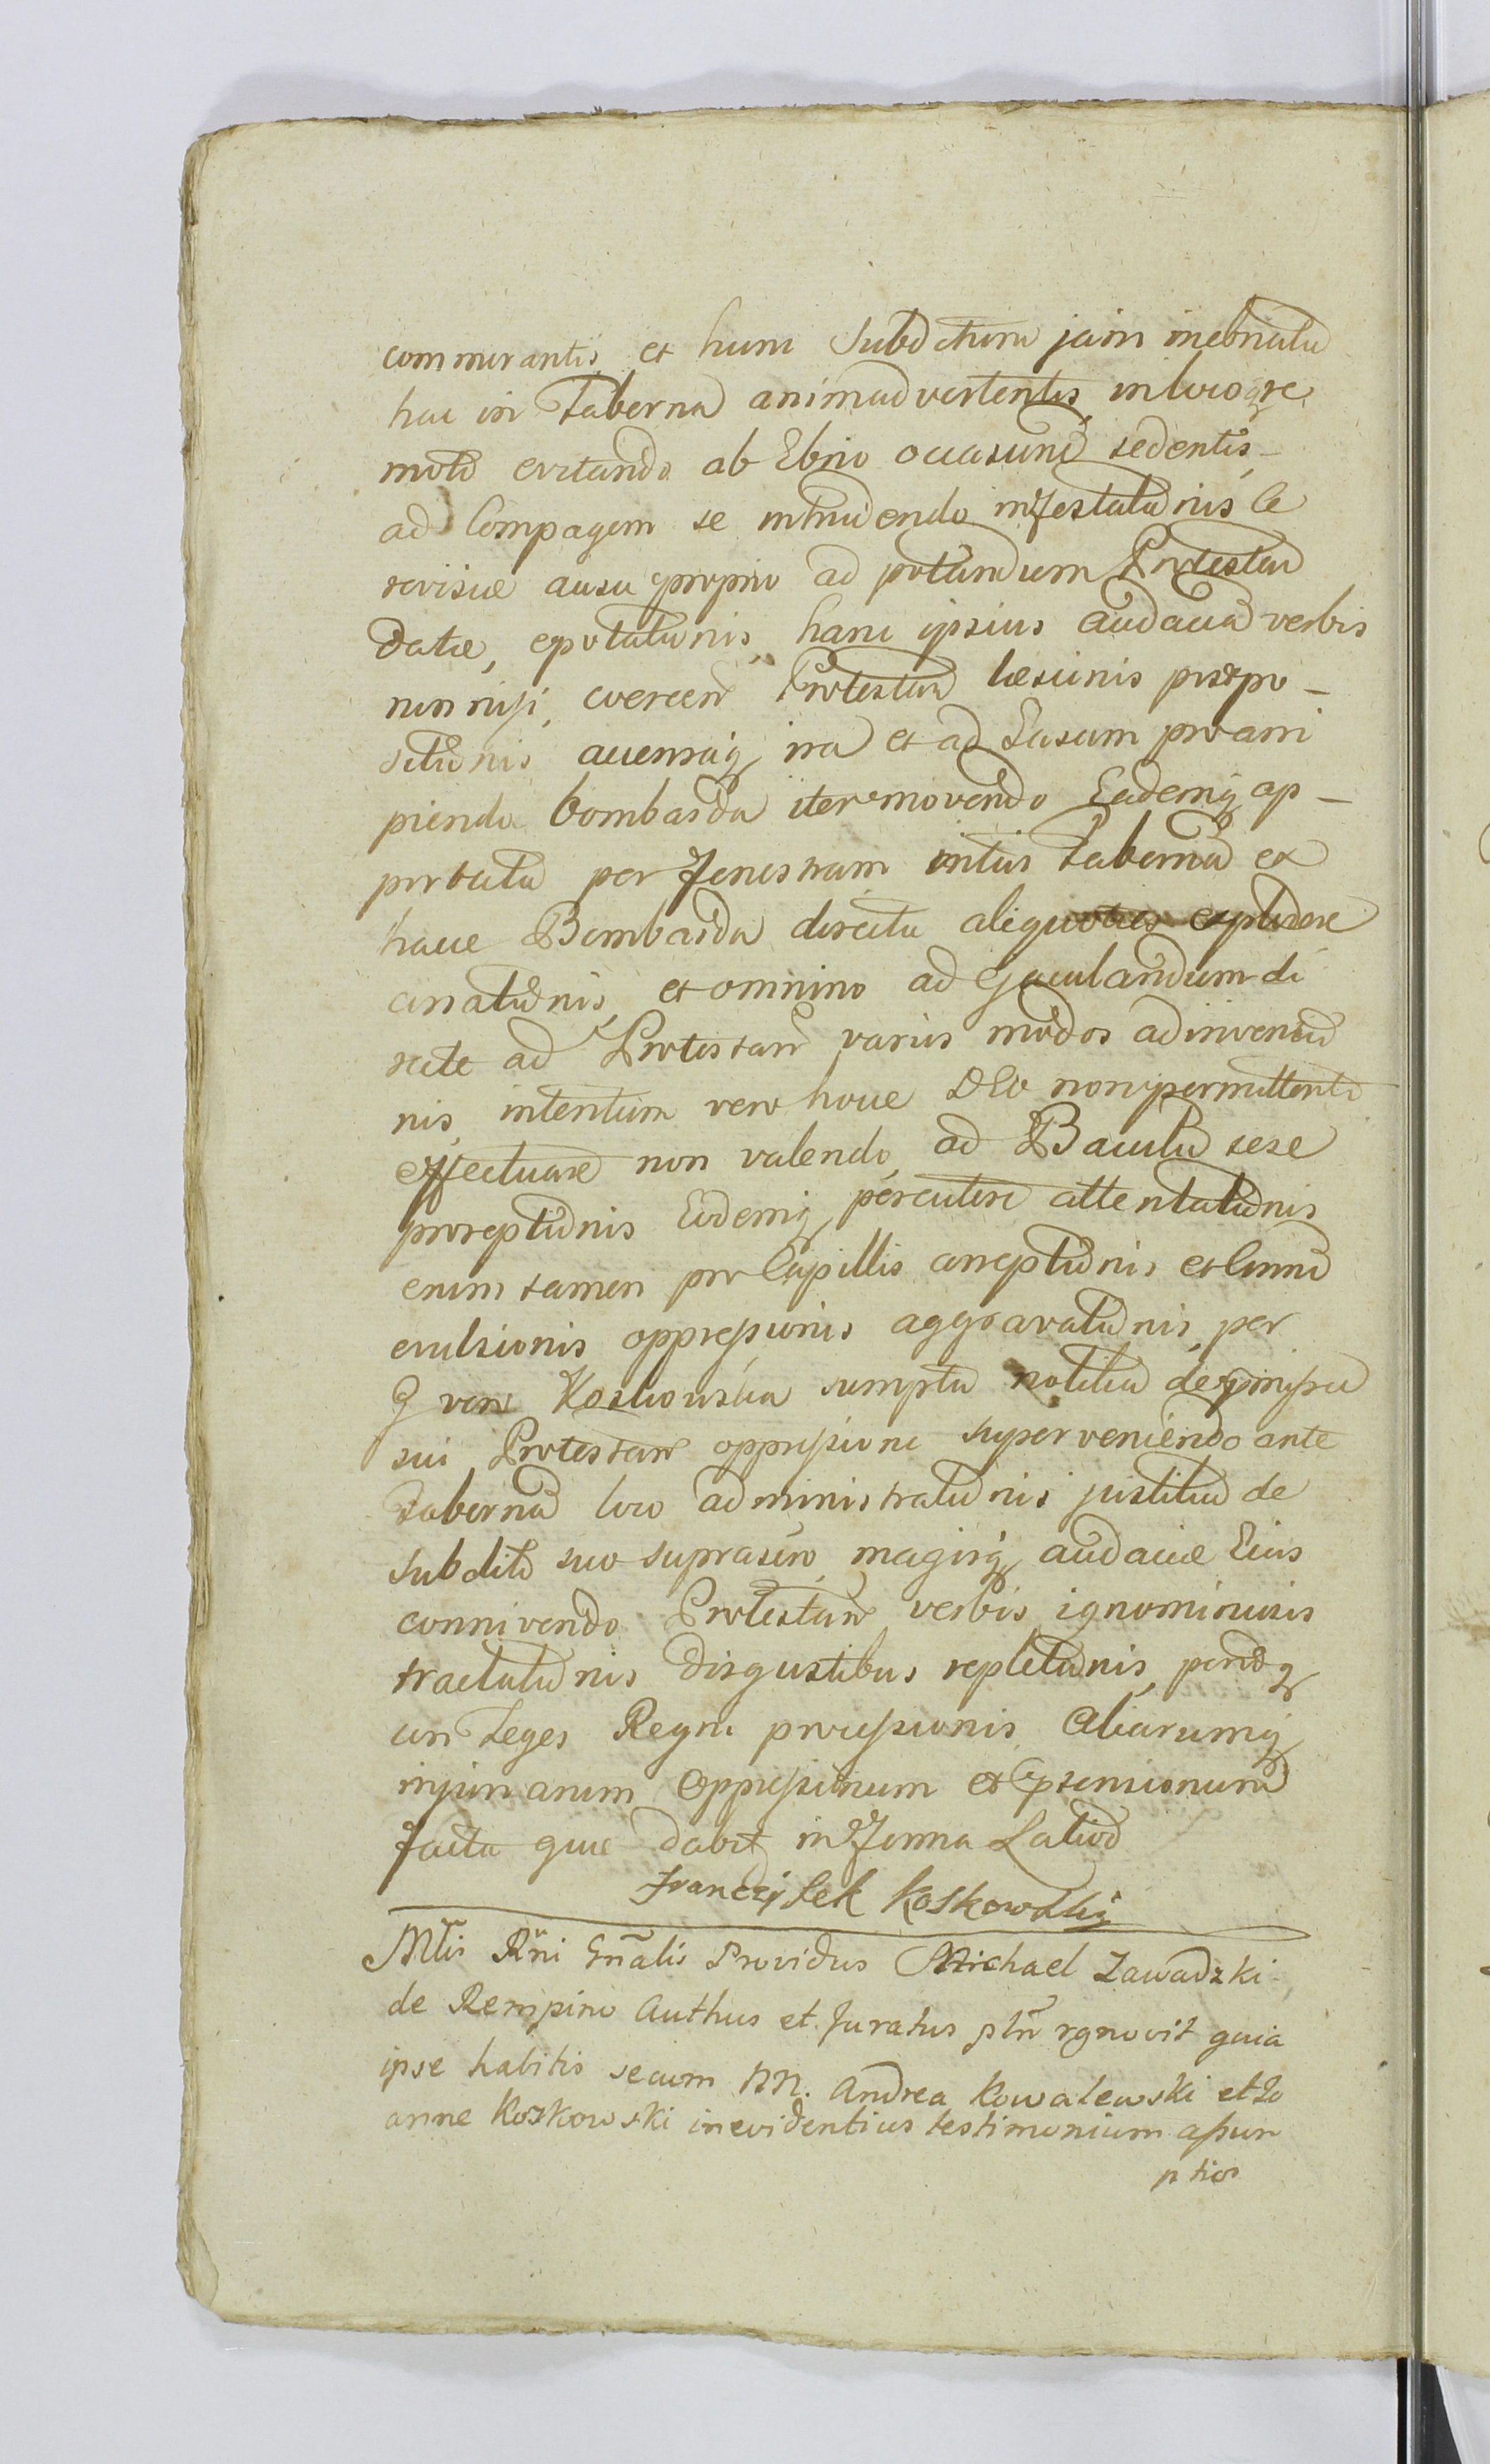 commorantis, et hunc Subditum jam inebriatū
hac in Taberna animadvertentis, in loco qꝫ re
moto evitando ab Ebrio occasionē sedentis _
ad Compagem se intrudendo infestationis Ce
revisiæ ausu proprio ad potandum Protestan
datæ, epotationis, hanc ipsius audaciā verbis
non nisi, coercen Protestan læsionis præpo _
sitionis accensaq ira et ad Lasum pro arri
pienda bombarda iter movendo Eademq ap _
portata per Fenestram intus Tabernā ex
hacce Bombarda directa aliquoties explodere
conationis, et omnino ad ejaculandum di
recte ad Protestan varios modos adinventio
nis, intentum vero hocce DEO non permittente
effectuare non valendo, ad Baculū sese
proreptionis Eodemq percutere attentationis
enim tamen pro Capillis arreptionis et
evulsionis oppressionis aggravationis, per
G vero Koskowska sumpta notitia de præmissa
sui Protestan oppressione superveniendo ante
Tabernā loco administrationis justitiæ de
subdito suo suprascro, magisq audaciæ Eius
connivendo Protestan verbis ignominiosis
tractationis disgustibus repletionis, pœnāq
con Leges Regni processionis, Aliarumq
injuriarum Oppressionum et Extensionum
facta quæ dabit in Forma Latiori
Franciszek Koskowskij
Mtis Rñi Gñalis Providus Michael Zawadzki
de Rempino Authus et Juratus ptñ rgnovit quia
ipse habitis secum NN. Andrea Kowalewski et Jo
anne Koskowski in evidentius testimonium assum
ptior